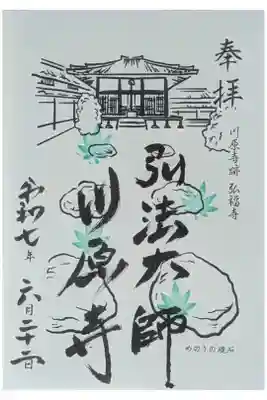 奉拝
川原寺跡 弘福寺
弘法大師
川原寺
令和七年 六月二十二日
めのうの礎石